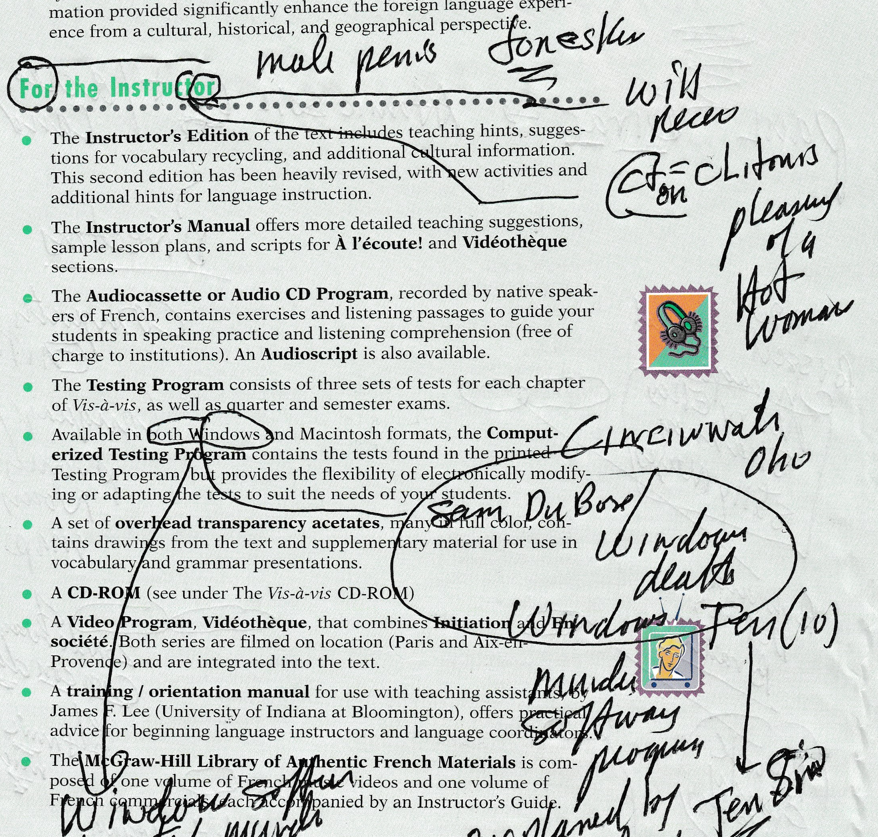 mation provided significantly enhance the foreign language experi-
ence from a cultural, historical, and geographical perspective.
male penis
For the Instructor
will
● The Instructor's Edition of the text includes teaching hints, sugges-
tions for vocabulary recycling, and additional cultural information.
This second edition has been heavily revised, with new activities and
additional hints for language instruction.
on
pleasury
of a
Hot
Woman
● The Instructor's Manual offers more detailed teaching suggestions,
sample lesson plans, and scripts for À l'écoute! and Vidéothèque
sections.
● The Audiocassette or Audio CD Program, recorded by native speak-
ers of French, contains exercises and listening passages to guide your
students in speaking practice and listening comprehension (free of
charge to institutions). An Audioscript is also available.
● The Testing Program consists of three sets of tests for each chapter
of Vis-à-vis, as well as quarter and semester exams.
● Available in both Windows and Macintosh formats, the Comput-
erized Testing Program contains the tests found in the printed
Testing Program, but provides the flexibility of electronically modify-
ing or adapting the tests to suit the needs of your students.
Cincinnati
Ohio
Sam DuBose
Window
death
Windows Ten (10)
● A set of overhead transparency acetates, many in full color, con-
tains drawings from the text and supplementary material for use in
vocabulary and grammar presentations.
● A CD-ROM (see under The Vis-à-vis CD-ROM)
● A Video Program, Vidéothèque, that combines Initiation and En
société. Both series are filmed on location (Paris and Aix-en-
Provence) and are integrated into the text.
● A training / orientation manual for use with teaching assistants, by
James F. Lee (University of Indiana at Bloomington), offers practical
advice for beginning language instructors and language coordinators.
● The McGraw-Hill Library of Authentic French Materials is com-
posed of one volume of French music videos and one volume of
French commercials, each accompanied by an Instructor's Guide.
program
Window
Ten